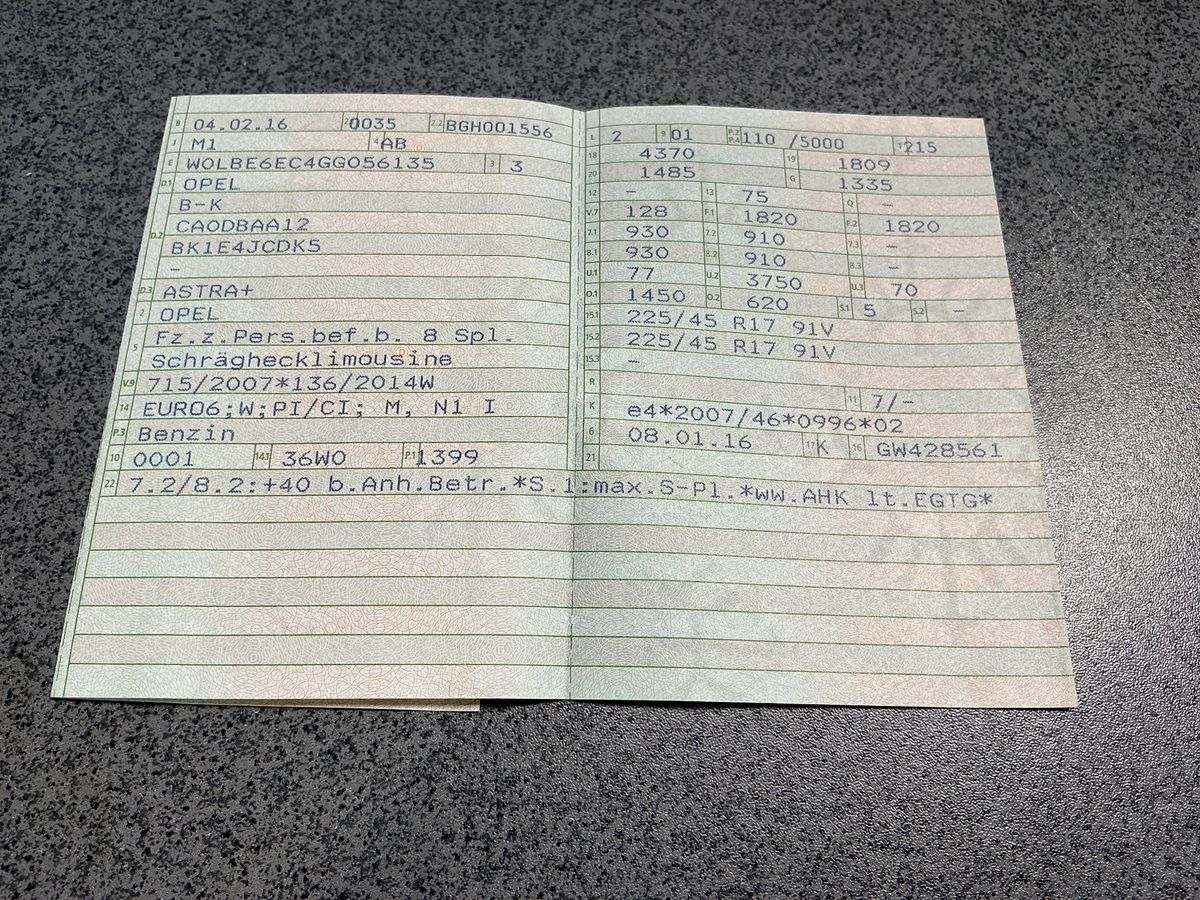 B 04.02.16 2.1 0035 2.2 BGH001556
J M1 4 AB
E W0LBE6EC4GG056135 3 3
D.1 OPEL
B-K
D.2 CAODBAA12
BK1E4JCDK5
–
D.3 ASTRA+
2 OPEL
5 Fz.z.Pers.bef.b. 8 Spl.
Schräghecklimousine
V.9 715/2007*136/2014W
14 EURO6;W;PI/CI; M, N1 I
P.3 Benzin
10 0001 14.1 36W0 P.1 1399
L 2 9 01 P.2 P.4 110 /5000 T 215
18 4370 19 1809
20 1485 G 1335
12 – 13 75 Q –
V.7 128 F.1 1820 F.2 1820
7.1 930 7.2 910 7.3 –
8.1 930 8.2 910 8.3 –
U.1 77 U.2 3750 U.3 70
O.1 1450 O.2 620 S.1 5 S.2 –
15.1 225/45 R17 91V
15.2 225/45 R17 91V
15.3 –
R 11 7/-
K e4*2007/46*0996*02
6 08.01.16 17 K 16 GW428561
21
22 7.2/8.2:+40 b.Anh.Betr.*S.1:max.S-Pl.*ww.AHK lt.EGTG*